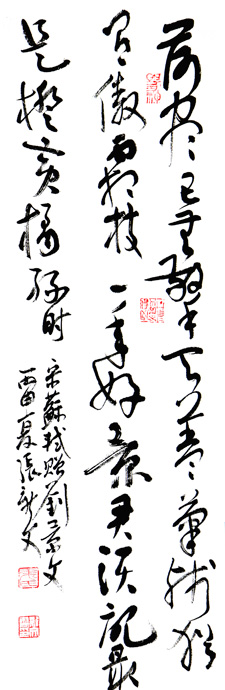 荷盡已無擎雨蓋菊殘猶
有傲霜枝一年好景君須記最
是橙黄橘緑時
宋蘇軾贈劉景文
夏張新文